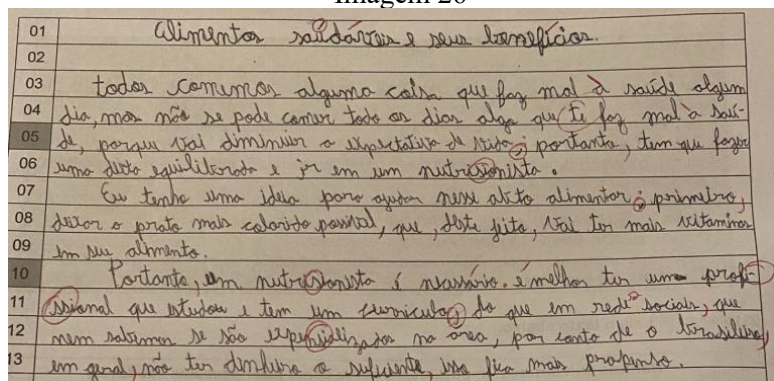 Imagem 20
01 Alimentos saúdáveis e seus benefícios.
02
03 todos comemos alguma coisa que faz mal à saúde algum
04 dia, mas não se pode comer todo os dias algo que te faz mal à saú-
05 de, porque vai diminuir a expectativa de vida; portanto, tem que fazer
06 uma dieta equilibrada e ir em um nutrisionista.
07 Eu tenho uma ideia para ajudar nesse abito alimentar: primeiro,
08 deixar o prato mais colorido possível, que, deste jeito, vai ter mais vitaminas
09 em seu alimento.
10 Portanto, um nutrisionista é necessário. é melhor ter uma profi-
11 ssional que estudou e tem um curriculo, do que em redes sociais, que
12 nem sabemos se são espensializados na área, por conta de o brasileiro,
13 em geral, não ter dinheiro o suficiente, isso fica mais propenso.